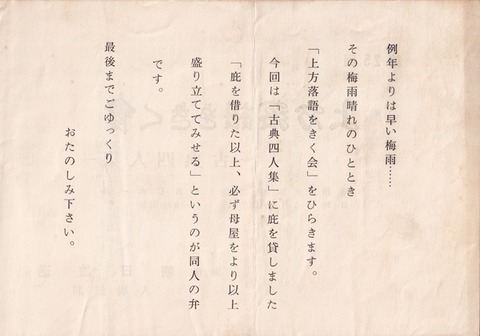 例年よりは早い梅雨……
その梅雨晴れのひととき
「上方落語をきく会」をひらきます。
今回は「古典四人集」に庇を貸しました
「庇を借りた以上、必ず母屋をより以上
盛り立ててみせる」というのが同人の弁
です。
最後までごゆっくり
おたのしみ下さい。